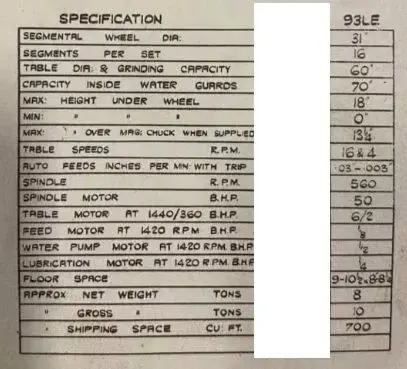 SPECIFICATION 93LE
SEGMENTAL WHEEL DIA: 31"
SEGMENTS PER SET 16
TABLE DIA: & GRINDING CAPACITY 60"
CAPACITY INSIDE WATER GUARDS 70"
MAX: HEIGHT UNDER WHEEL 18"
MIN: " " " 0"
MAX: " OVER MAG: CHUCK WHEN SUPPLIED 13¼"
TABLE SPEEDS R.P.M. 16 & 4
AUTO FEEDS INCHES PER MIN: WITH TRIP .03"-.003"
SPINDLE R.P.M. 560
SPINDLE MOTOR B.H.P. 50
TABLE MOTOR AT 1440/360 B.H.P. 6/2
FEED MOTOR AT 1420 RPM B.H.P.
WATER PUMP MOTOR AT 1420 R.P.M. B.H.P. ½
LUBRICATION MOTOR AT 1420 R.P.M. B.H.P
FLOOR SPACE
APPROX NET WEIGHT TONS 8
" GROSS " TONS 10
" SHIPPING SPACE CU: FT. 700